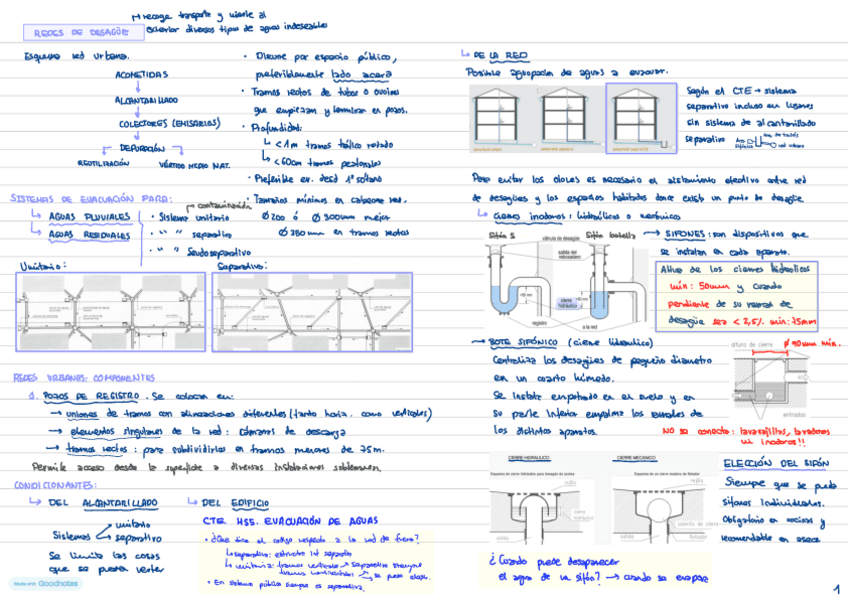 REDES DE DESAGÜE
→ recoge transporte y vierte al
exterior diversos tipos de aguas indeseables
Esquema red urbana.
ACOMETIDAS
ALCANTARILLADO
COLECTORES (EMISARIOS)
DEPURACIÓN
REUTILIZACIÓN
VERTIDO MEDIO NAT.
• Discurre por espacio público,
preferiblemente lado acera
• Tramos rectos de tubos o ovoides
que empiezan y terminan en pozos.
• Profundidad:
↳ <1m tramos tráfico rodado
↳ <60cm tramos peatonales
• Preferible en. desd 1º sótano
• Tamaños mínimos en cabecera red.
Ø 200 ó Ø 300mm mejor
Ø 250mm en tramos rectos
SISTEMAS DE EVACUACIÓN PARA:
↳ AGUAS PLUVIALES
↳ AGUAS RESIDUALES
→ contaminación
• Sistema unitario
• " " separativo
• " " Seudoseparativo
Unitario:
Separativo:
REDES URBANAS: COMPONENTES
1. POZOS DE REGISTRO. Se colocan en:
→ uniones de tramos con alineaciones diferentes (tanto horiz. como verticales)
→ elementos singulares de la red: cámaras de descarga
→ tramos rectos: para subdividirlos en tramos menores de 75m.
Permite acceso desde la superficie a diversas instalaciones subterráneas.
CONDICIONANTES:
↳ DEL ALCANTARILLADO
Sistemas
unitario
separativo
Se limita las cosas
que se pueden verter
↳ DEL EDIFICIO
CTE. HS5. EVACUACIÓN DE AGUAS
• ¿Que dice el código respecto a la red de fuera?
↳ separativo:
↳ unitario: tramos verticales → separativo siempre
tramos horizontales → se puede elegir.
• En sistema público siempre es separativo.
↳ DE LA RED
Posible agrupación de aguas a evacuar.
Según el CTE → sistema
separativo incluso en lugares
sin sistema de alcantarillado
separativo
Para evitar los olores es necesario el aislamiento efectivo entre red
de desagües y los espacios habitados donde exista un punto de desagüe
↳ cierres inodoros: hidráulicos o mecánicos
Sifón S
válvula de desagüe
salida del
rebosadero
Sifón botella
cierre
hidráulico
registro
a la red
→ SIFONES: son dispositivos que
se instalan en cada aparato.
Altura de los cierres hidráulicos
mín: 50mm y cuando
pendiente de su ramal de
desagüe sea < 2,5% mín: 75mm
→ BOTE SIFÓNICO (cierre hidráulico)
Centraliza los desagües de pequeño diámetro
en un cuarto húmedo.
Se instala empotrado en el suelo y en
su parte inferior empalma los ramales de
los distintos aparatos.
altura de cierre
Ø 90mm mín.
salida
entradas
NO se conecta: lavavajillas, lavadoras
ni inodoros!!
CIERRE HIDRAULICO
Esquema de un cierre hidráulico para desagüe de azotea
rejilla
cierre
hidráulico
salida
CIERRE MECANICO
Esquema de un cierre mecánico de flotador
rejilla
asiento de cierre
flotador
salida
ELECCIÓN DEL SIFÓN
Siempre que se pueda
sifones individuales.
Obligatorio en cocinas y
recomendable en aseos
¿Cuando puede desaparecer
el agua de un sifón? → cuando se evapora
Made with Goodnotes
1